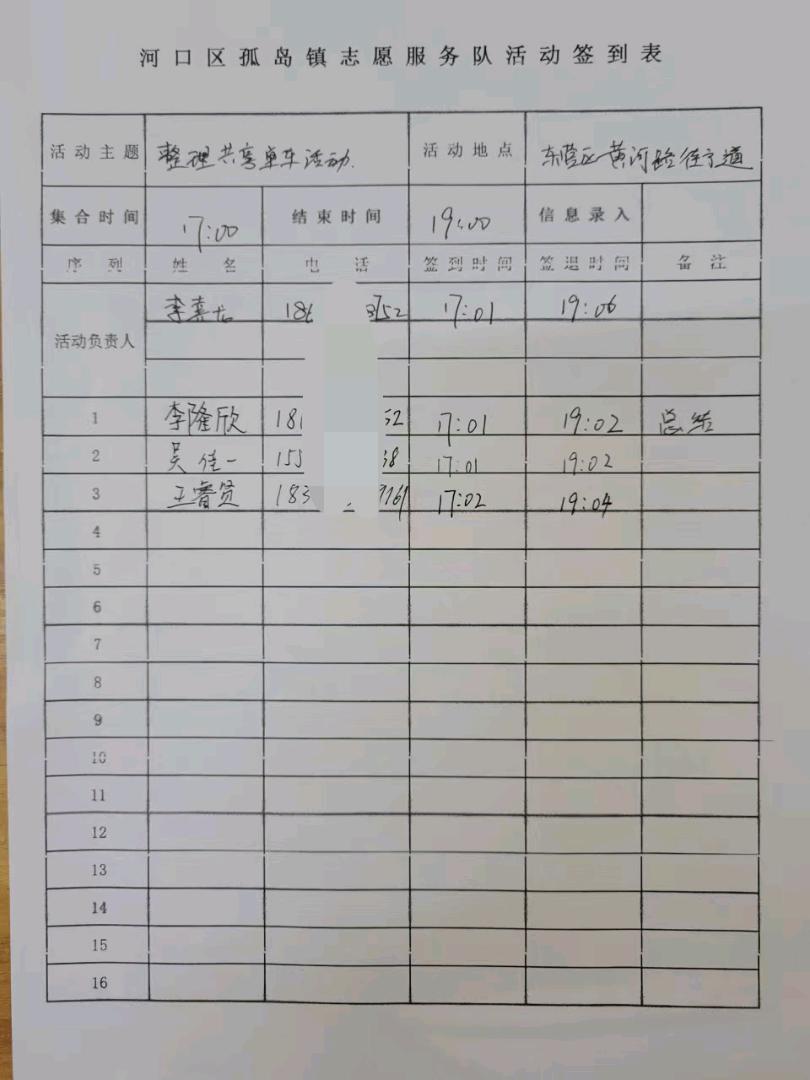 河口区孤岛镇志愿服务队活动签到表
活动主题 整理共享单车活动. 活动地点 东营区黄河路人行道
集合时间 17:00 结束时间 19:00 信息录入
序列 姓名 电话 签到时间 签退时间 备注
活动负责人 李 186 52 17:01 19:06
1 李隆欣 181 52 17:01 19:02 总结
2 吴佳一 155 38 17:01 19:02
3 王睿贤 183 9761 17:02 19:04
4
5
6
7
8
9
10
11
12
13
14
15
16